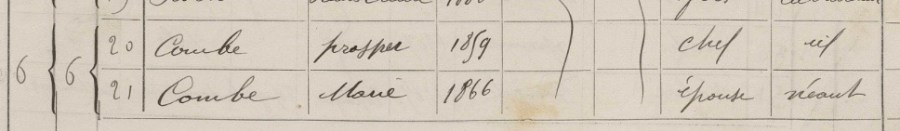 20 Combe prosper 1859 chef
6 6
21 Combe Marie 1866 épouse néant